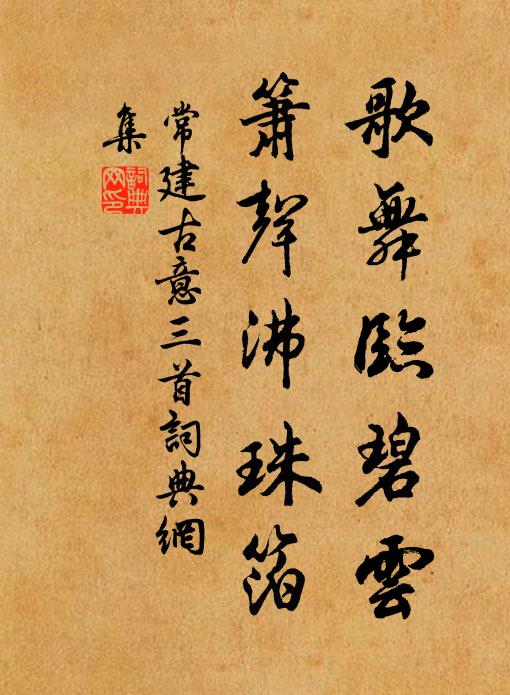 歌舞臨碧雲
簫聲沸珠箔
常建古意三首詞典網
集
詞典網印